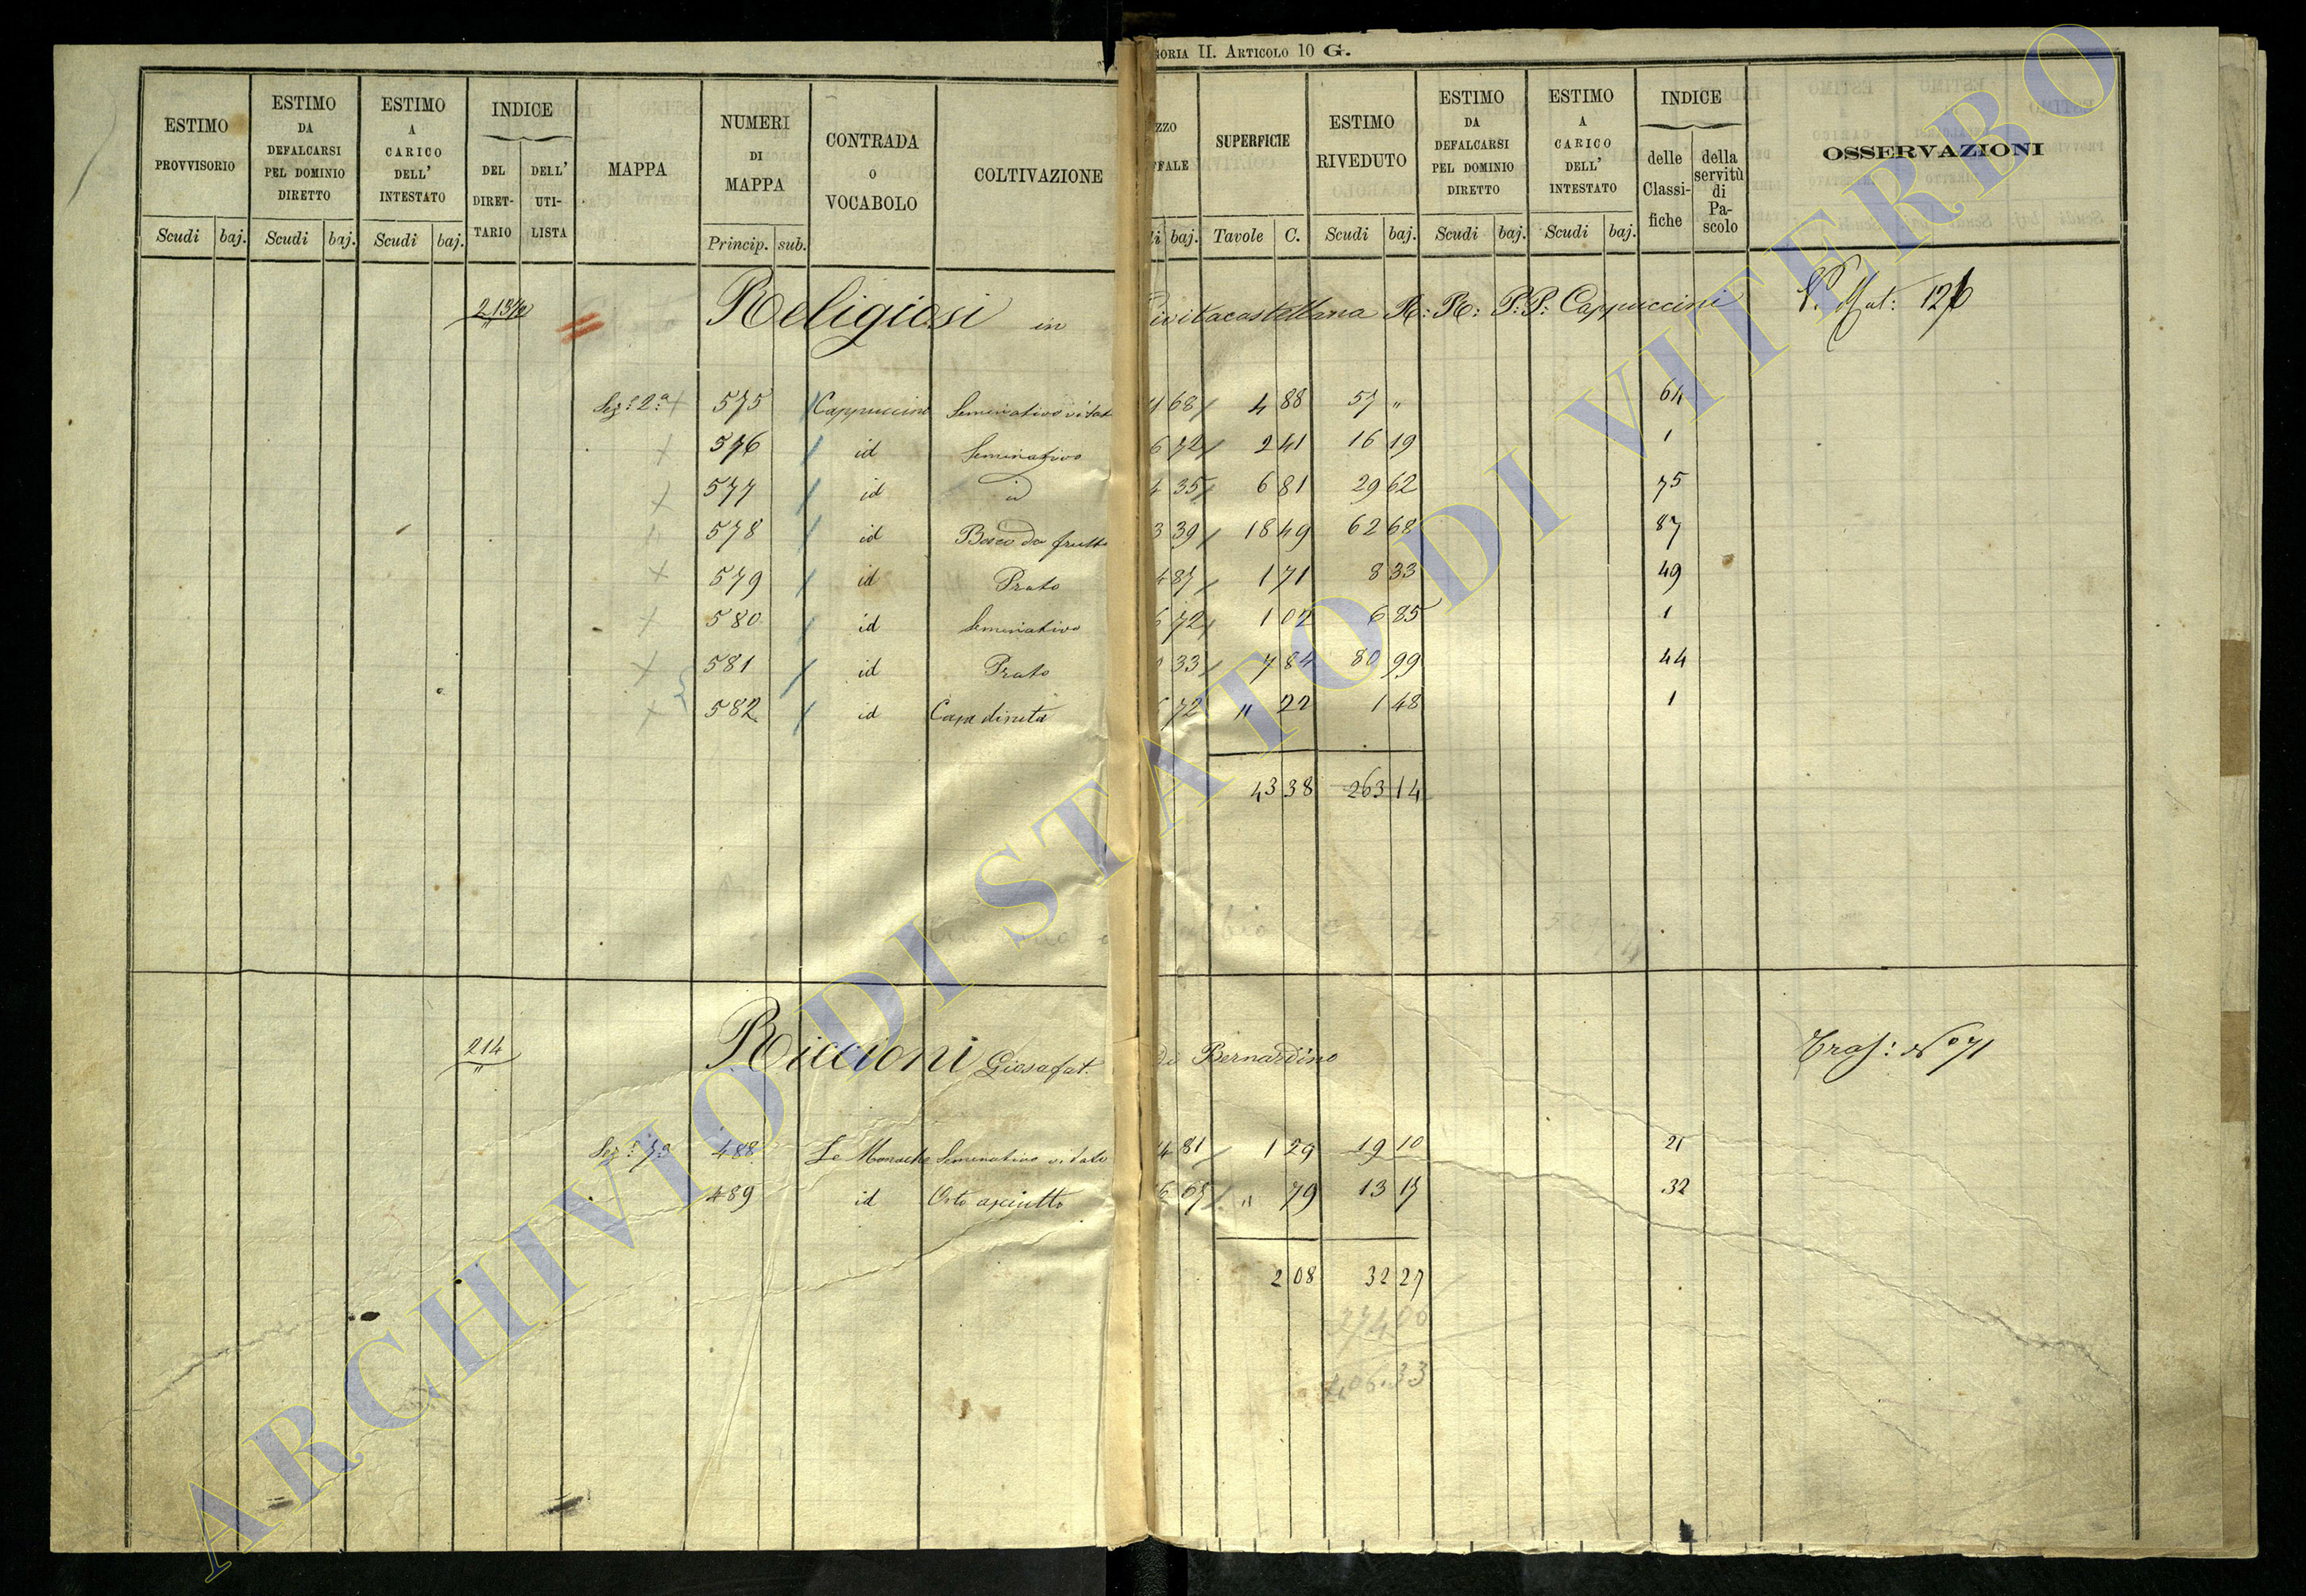 GORIA II. ARTICOLO 10 G.
ESTIMO PROVVISORIO
ESTIMO DA DEFALCARSI PEL DOMINIO DIRETTO
ESTIMO A CARICO DELL' INTESTATO
INDICE
DEL DIRETTARIO
DELL' UTILISTA
MAPPA
NUMERI DI MAPPA
CONTRADA O VOCABOLO
COLTIVAZIONE
ZZO FFALE
SUPERFICIE
ESTIMO RIVEDUTO
ESTIMO DA DEFALCARSI PEL DOMINIO DIRETTO
ESTIMO A CARICO DELL' INTESTATO
INDICE
delle Classifiche
della servitù di Pascolo
OSSERVAZIONI
Scudi baj. Scudi baj. Scudi baj. Princip. sub. di baj. Tavole C. Scudi baj. Scudi baj. Scudi baj.
Religiosi in Civitacastellana R: R: P: P: Cappuccini
Sez.e 2.a 575 Cappuccini Seminativo vitato 68 4 88 57 " 64
576 id Seminativo 6 72 2 41 16 19 1
577 id id 4 35 6 81 29 62 75
578 id Bosco da frutto 3 39 18 49 62 68 87
579 id Prato 4 87 1 71 8 33 49
580 id Seminativo 6 72 1 02 6 85 1
581 id Prato 33 7 84 80 99 44
582 id Casa diruta 72 " 22 1 48 1
43 38 263 14
214 Riccioni Giosafat. di Bernardino Tras: N° 71
488 Le Monache Seminativo vitato 4 81 1 29 19 10 21
489 id Orto asciutto 6 67 " 79 13 17 32
2 08 32 27
ARCHIVIO DI STATO DI VITERBO